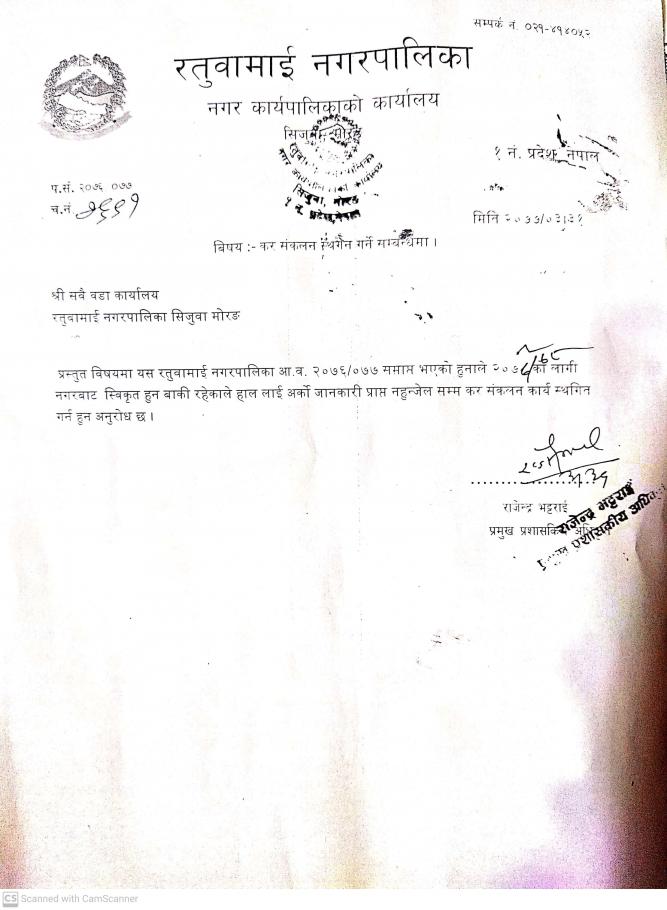 सम्पर्क नं. ०२१-४१४०५२
रतुवामाई नगरपालिका
नगर कार्यपालिकाको कार्यालय
सिजुवा मोरङ
रतुवामाई नगरपालिका
नगर कार्यपालिकाको कार्यालय
सिजुवा, मोरङ
१ नं. प्रदेश, नेपाल
१ नं. प्रदेश, नेपाल
प.सं. २०७६ ०७७
च.नं.
मिति २०७७/०३/३१
विषय :- कर संकलन स्थगन गर्ने सम्बन्धमा ।
श्री सवै वडा कार्यालय
रतुवामाई नगरपालिका सिजुवा मोरङ
प्रस्तुत विषयमा यस रतुवामाई नगरपालिका आ.व. २०७६/०७७ समाप्त भएको हुनाले को लागी
नगरबाट स्विकृत हुन बाकी रहेकाले हाल लाई अर्को जानकारी प्राप्त नहुन्जेल सम्म कर संकलन कार्य स्थगित
गर्न हुन अनुरोध छ ।
राजेन्द्र भट्टराई
प्रमुख प्रशासकिय
राजेन्द्र भट्टराई
प्रशासकीय
CS Scanned with CamScanner